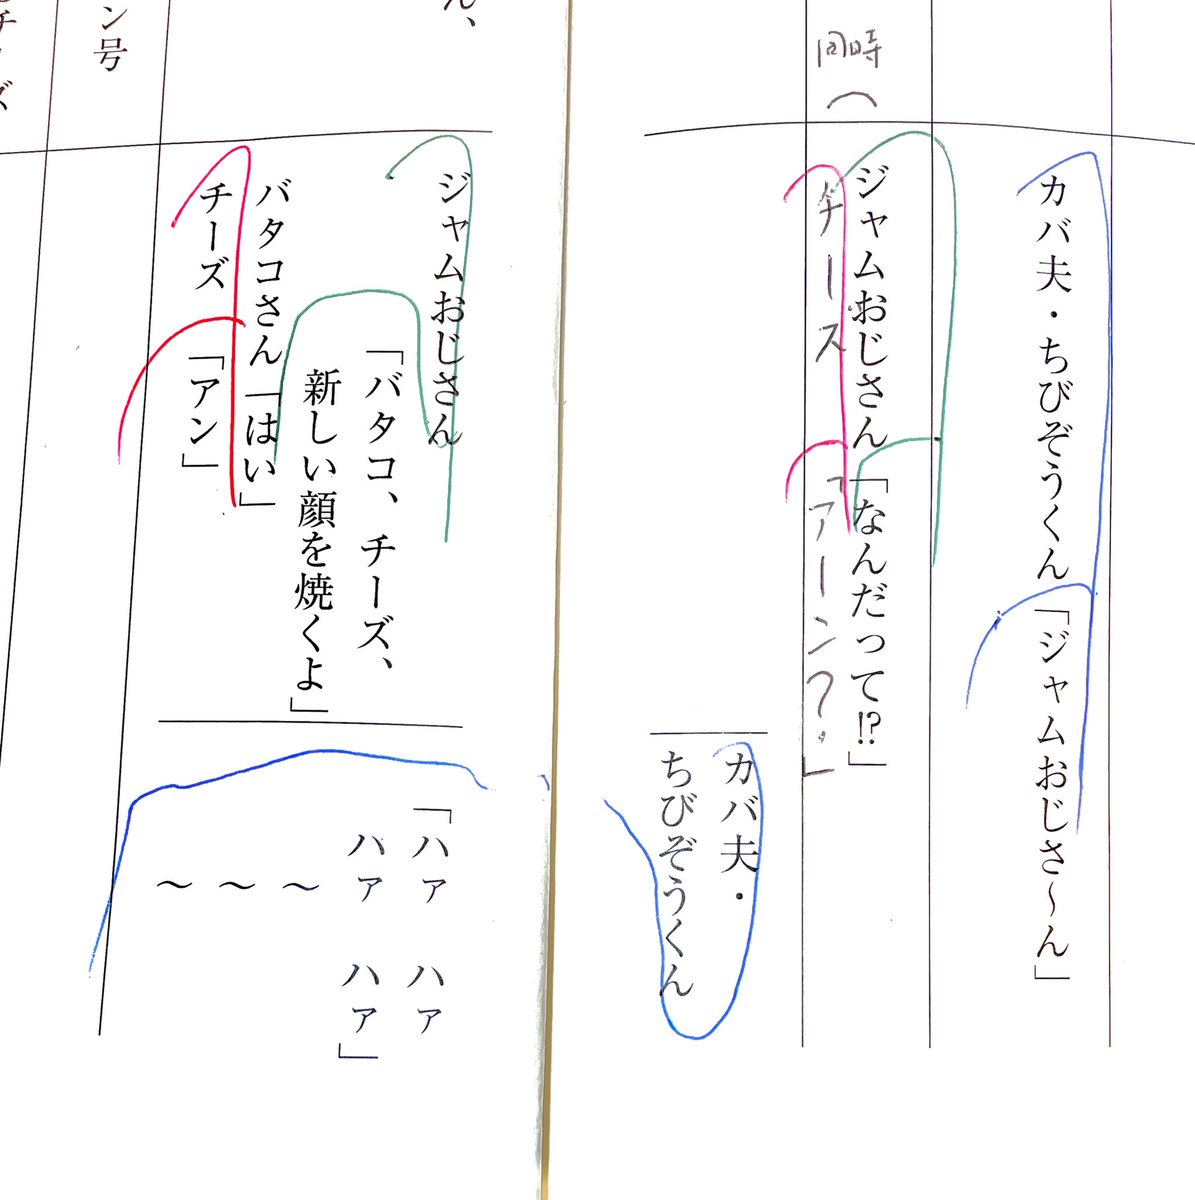 カバ夫・ちびぞうくん「ジャムおじさ〜ん」
ジャムおじさん「なんだって!?」
同時(
チーズ「アーン?」
カバ夫・
ちびぞうくん
ジャムおじさん
「バタコ、チーズ、
新しい顔を焼くよ」
バタコさん「はい」
チーズ「アン」
「ハァ ハァ
ハァ ハァ」
〜
〜
〜
ん、
ン号